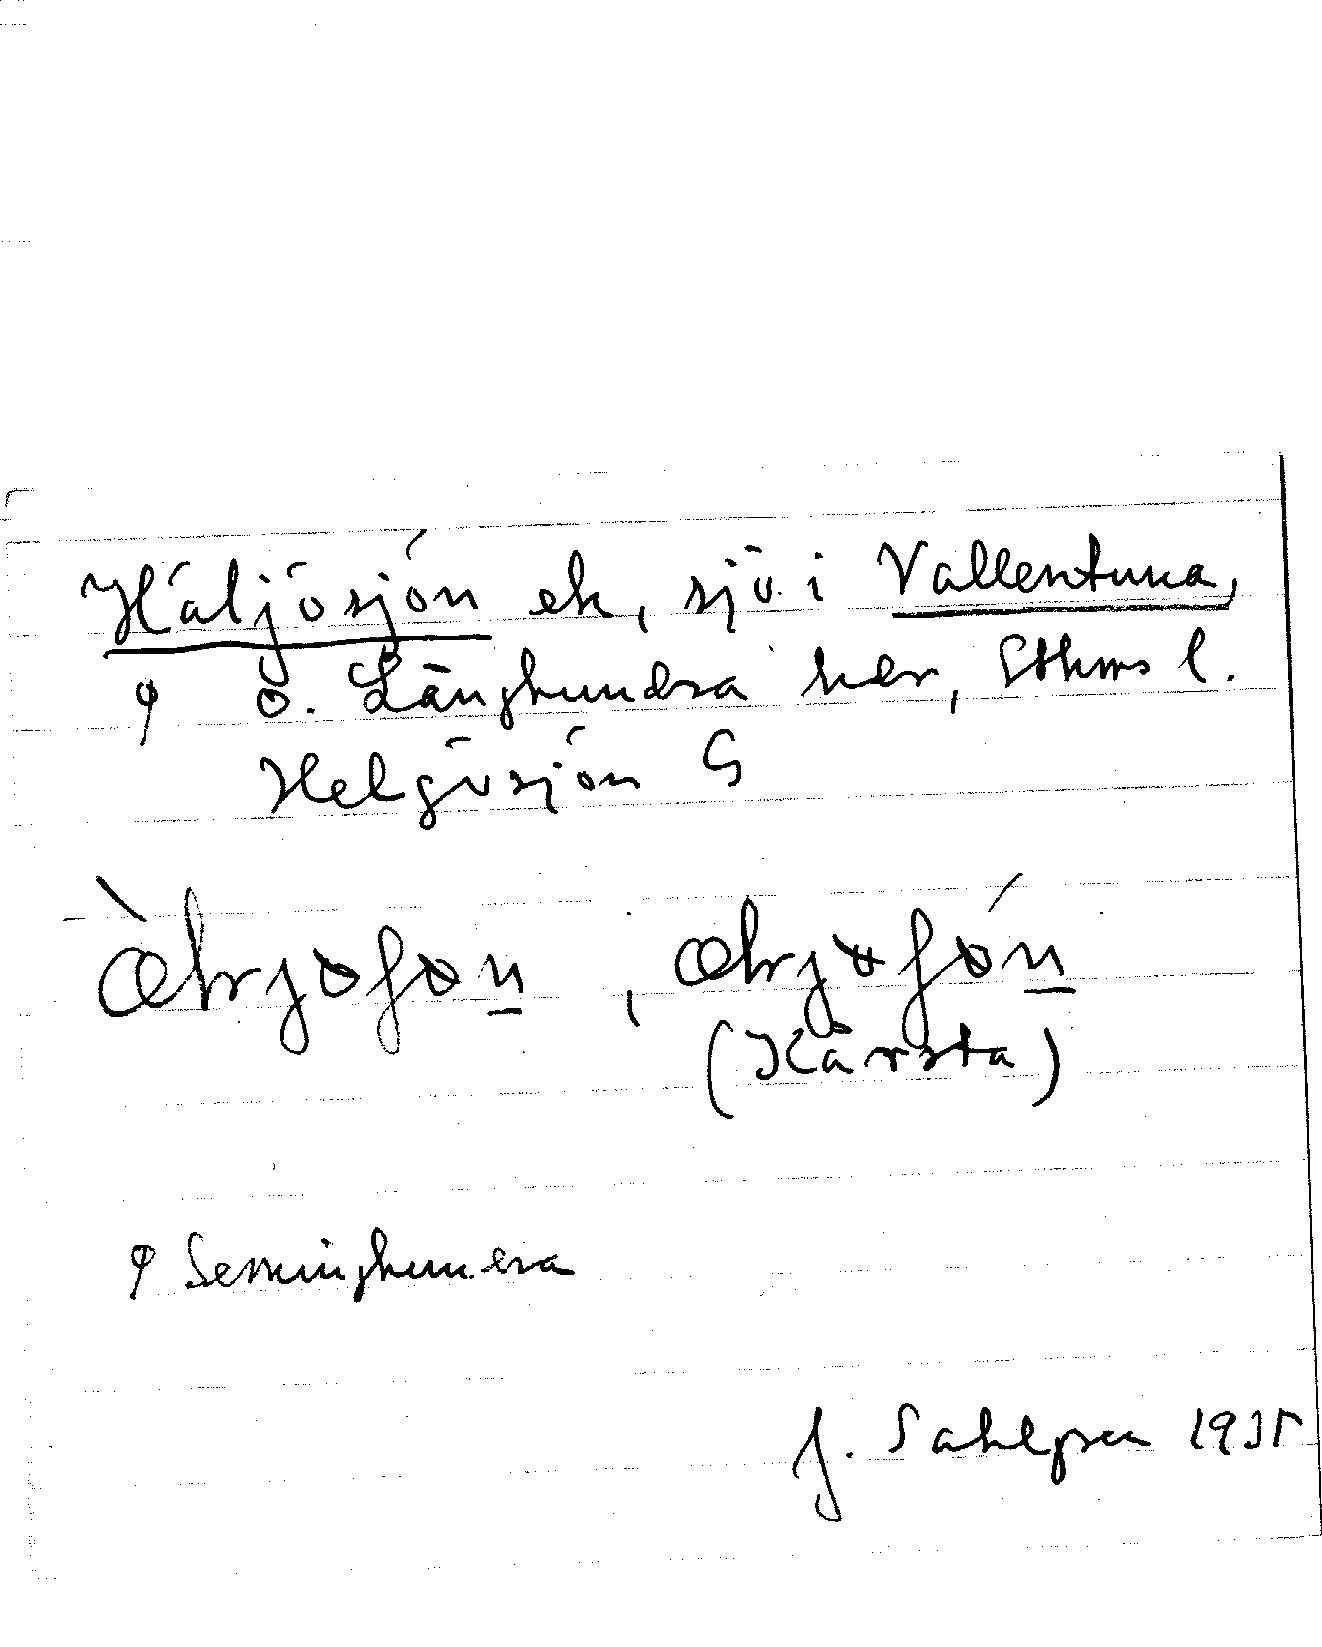 Häljösjön ek, sjö i Vallentuna,
ö. Långhundra hdr, Sthms l.
Helgösjön G
(Kårsta)
Seminghundra
J. Sahlgren 1935